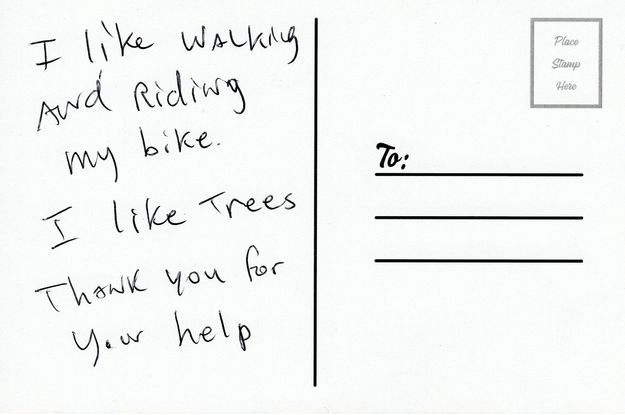 I like Walking
And Riding
my bike.
I like Trees
Thank you for
your help
Place
Stamp
Here
To: